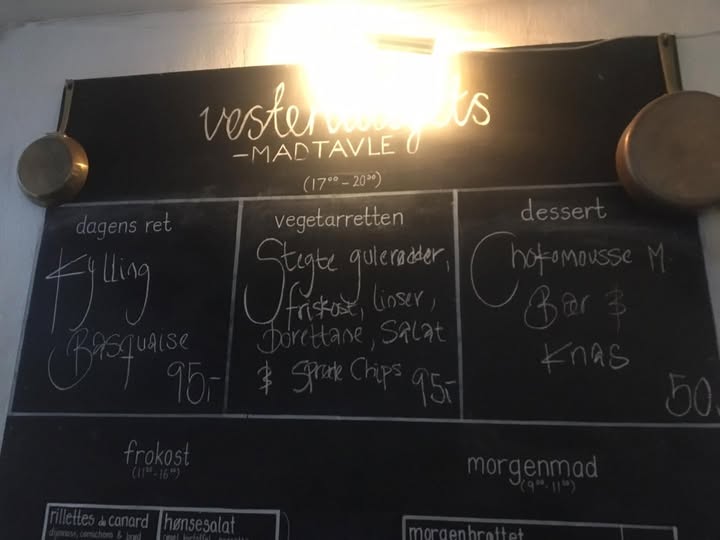 -MADTAVLE
(17⁰⁰-20³⁰)
dagens ret
Kylling
Basquaise
95,-
vegetarretten
Stegte gulerødder,
friskost, linser,
Borettane, Salat
& Sprøde Chips
95,-
dessert
Chokomousse M.
Bær &
Knas
50,
frokost
(11⁰⁰-16⁰⁰)
morgenmad
(9⁰⁰-11⁰⁰)
rillettes de canard
hønsesalat
morgenbrættet